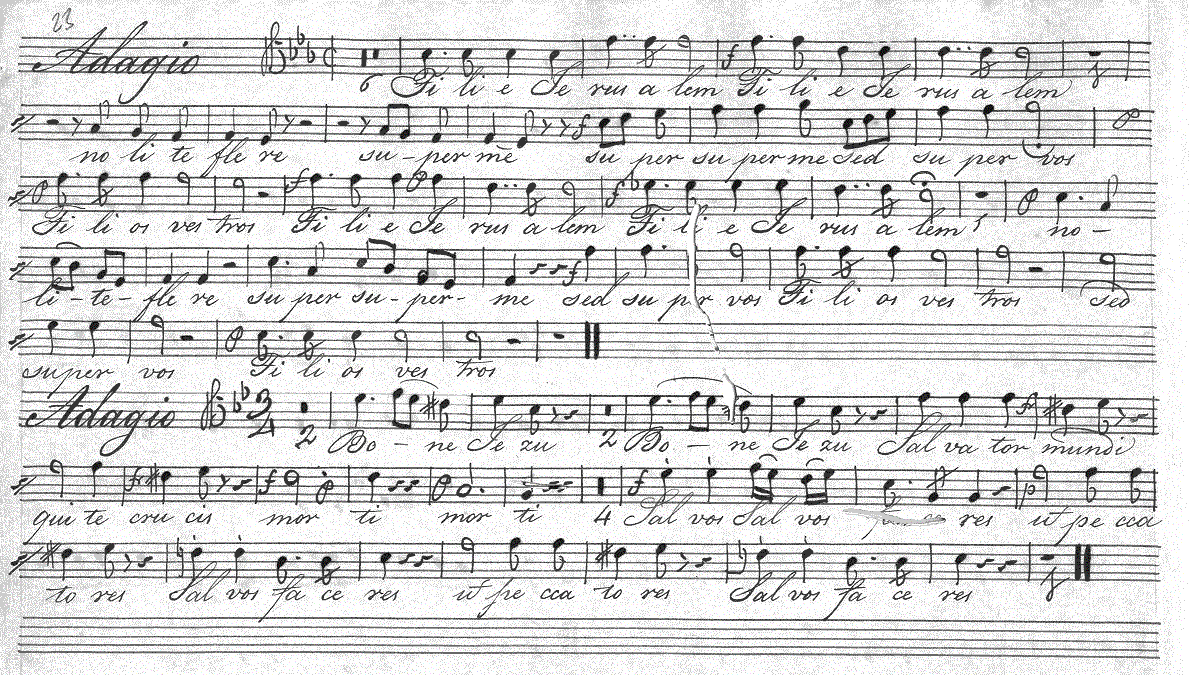 23
Adagio
6 Fi li e Je rus a lem Fi li e Je rus a lem
no li te fle re su - per me su per su per me sed su per vos
Fi li os ves tros Fi li e Je rus a lem Fi li e Je rus a lem no -
li - te - fle re su per su - per - me sed su per vos Fi li os ves tros sed
super vos Fi li os ves tros
Adagio 3/4
2 Bo - ne Je zu 2 Bo - ne Je zu Sal va tor mundi
qui te cru cis mor ti mor ti 4 Sal vos Sal vos res ut pe cca
to res Sal vos fa ce res ut pe cca to res Sal vos fa ce res